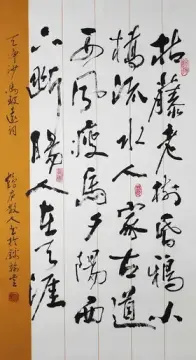 枯藤老樹昏鴉小
橋流水人家古道
西風瘦馬夕陽西
下断腸人在天涯
天净沙 馬致遠詞